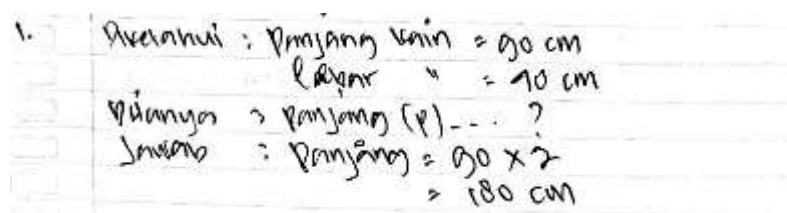 1. Diketahui : Panjang kain = 90 cm
Lebar " = 70 cm
Ditanya : Panjang (p) ---- ?
Jawab : Panjang = 90 x 2
= 180 cm